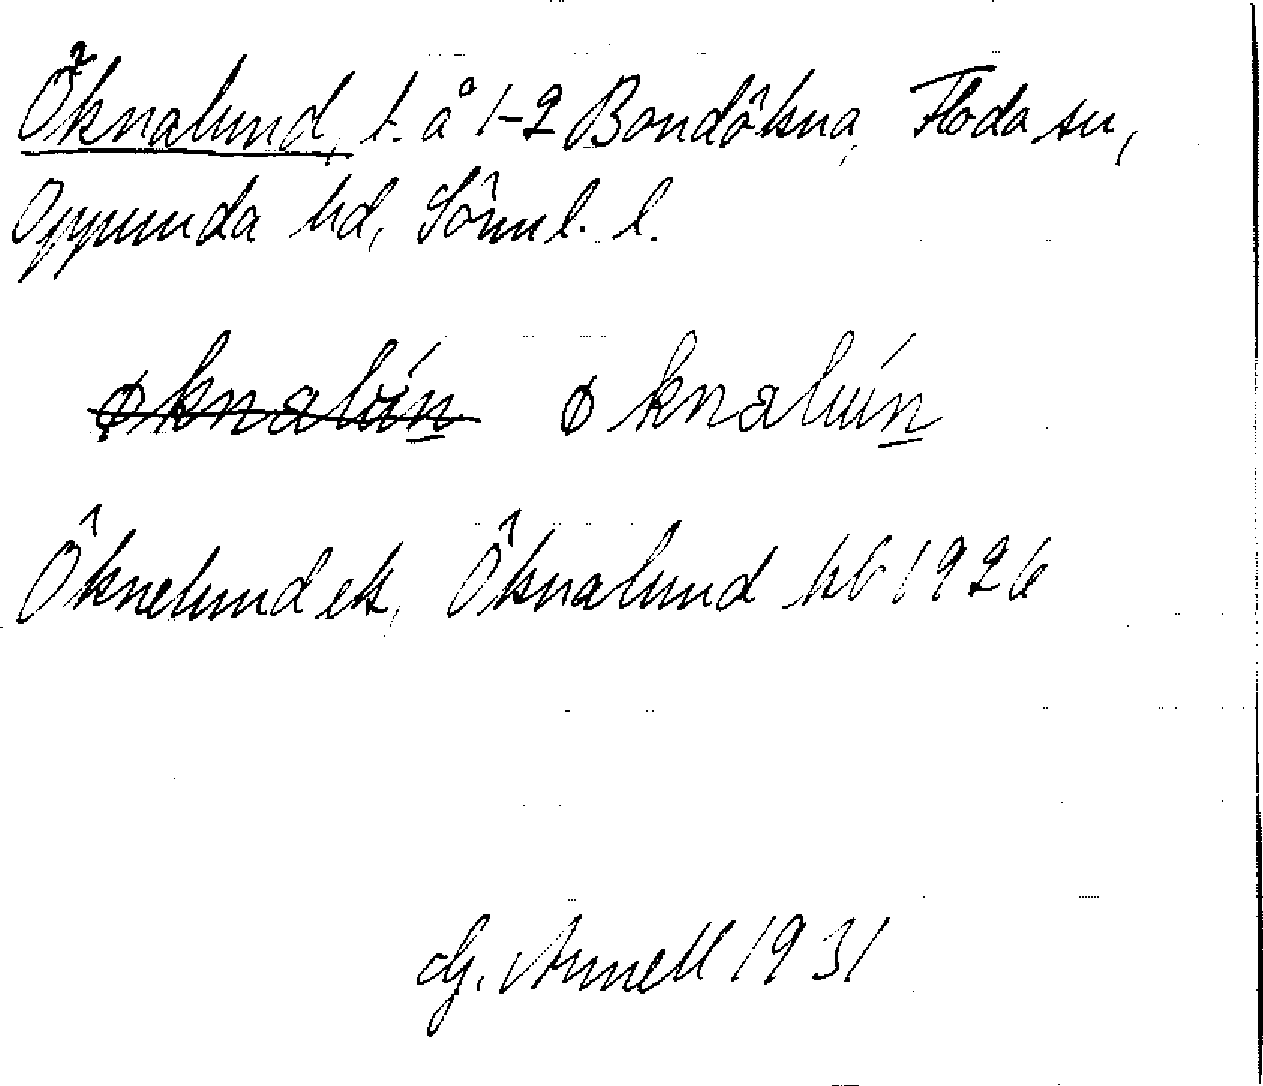 Öknalund, t. å 1-2 Bondökna, Floda sn,
Oppunda hd, Sörml. l.
øknalún øknalún
Öknelund ek, Öknalund kb 1926
G. Arnell 1931